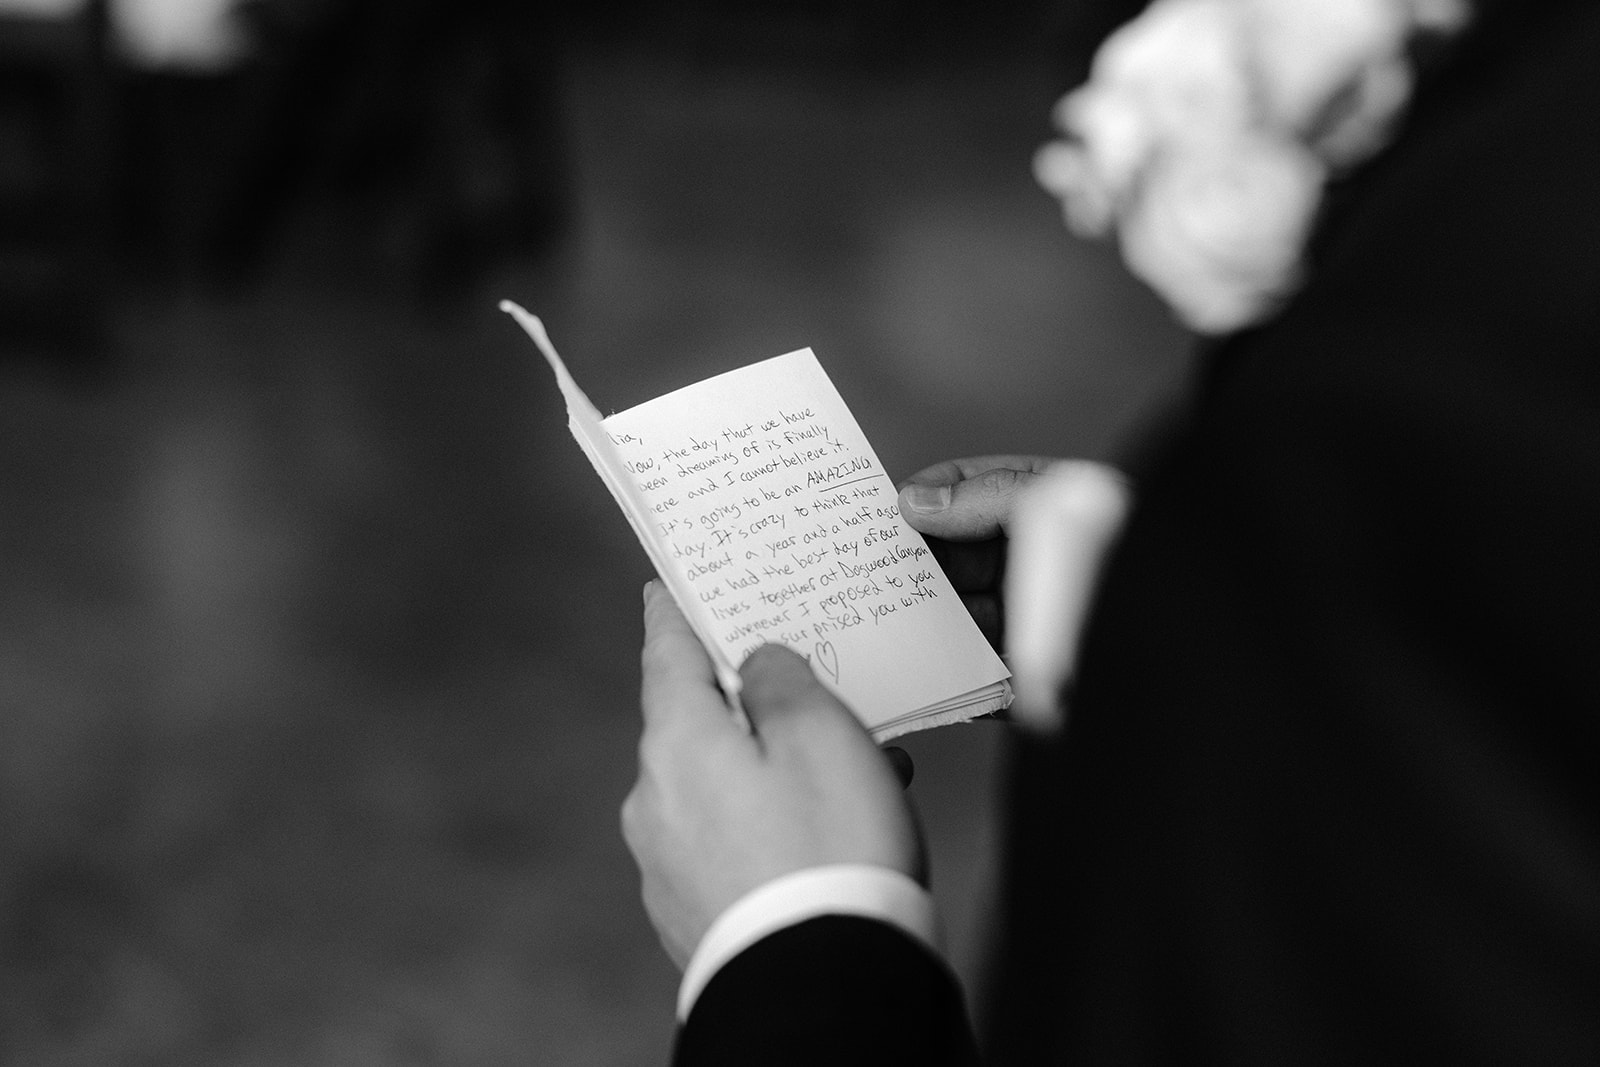 lia,
Wow, the day that we have
been dreaming of is finally
here and I cannot believe it.
It's going to be an AMAZING
day. It's crazy to think that
about a year and a half ago
we had the best day of our
lives together at Dogwood Canyon
whenever I proposed to you
and surprised you with